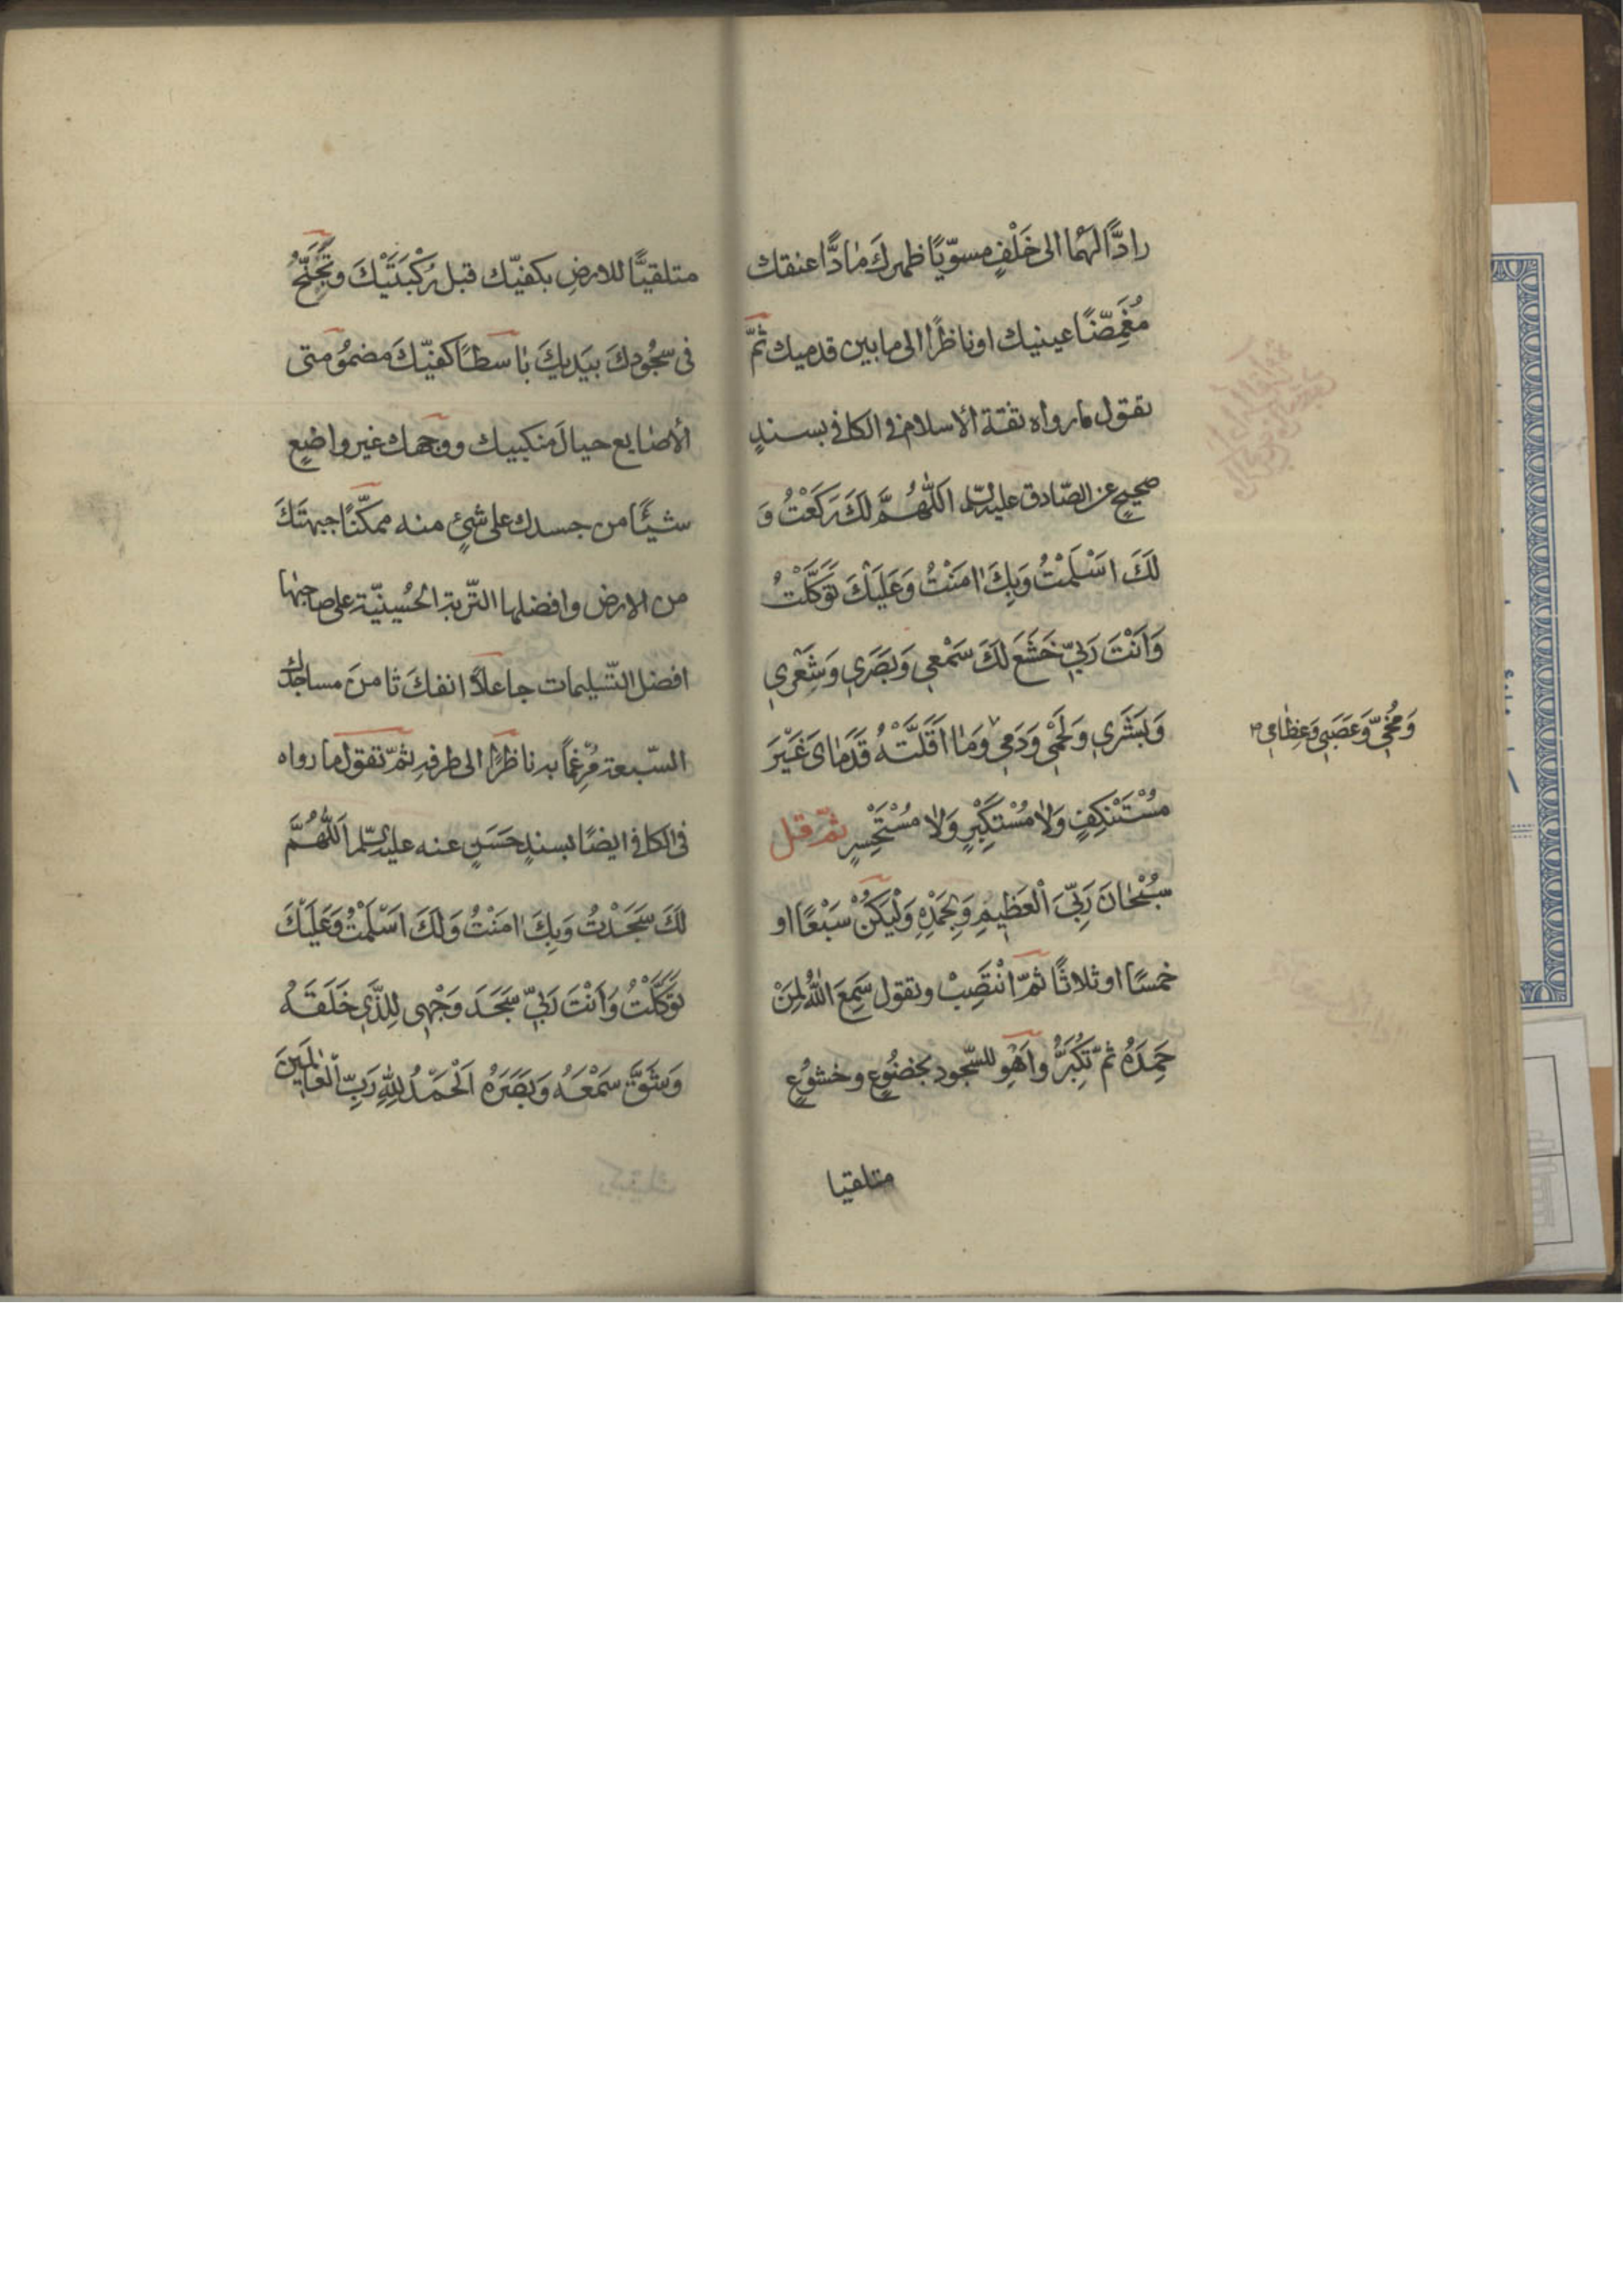 رادًّا لهما الى خَلْفٍ مسوّيًا ظهرك مٰادًّا عنقك
مُغَمِّضًا عينيك او ناظرًا الى ما بين قدميك ثمّ
تقول ما رواه ثقة الأسلام فى الكافى بسندٍ
صحيحٍ عن الصّادق عليه السلم اَللّٰهُمَّ لَكَ رَكَعْتُ وَ
لَكَ اَسْلَمْتُ وَبِكَ اٰمَنْتُ وَعَلَيْكَ تَوَكَّلْتُ
وَاَنْتَ رَبّي خَشَعَ لَكَ سَمْعي وَبَصَري وَشَعْري
وَبَشَري وَلَحْمي وَدَمي وَمٰا اَقَلَّتْهُ قَدَمٰاىَ غَيْرَ
وَمُخّي وَعَصَبي وَعِظٰامي
مُسْتَنْكِفٍ وَلٰا مُسْتَكْبِرٍ وَلٰا مُسْتَحْسِرٍ ثمّ قل
سُبْحٰانَ رَبِّىَ الْعَظيمِ وَبِحَمْدِهِ وَلْيَكُنْ سَبْعًا او
خمسًا او ثلاثًا ثمّ انْتَصِبْ وتقول سَمِعَ اللهُ لِمَنْ
حَمِدَهُ ثمّ تكَبّرُ واَهْوِ للسّجود بخضُوعٍ وخشوُعٍ
متلقيا
متلقيًّا للارضِ بكفيّك قبل رُكْبَتَيْكَ وتُجَنّحُ
فى سجُودِكَ بيَديكَ بٰاسطًا كفيّكَ مضموُمتى
الأصٰابع حيالَ منكبيك ووجهك غير واضعٍ
شيئًا من جسدك على شئٍ منه ممكّنًا جبهتَكَ
من الارض وافضلها التّربة الحُسينيّة على صاحبها
افضل التّسليمات جاعلاً انفكَ ثامنَ مساجدك
السّبعة مُرْغِمًا به ناظرًا الى طرفهِ ثمّ تقول ما رواه
فى الكافى ايضًا بسندٍ حَسَنٍ عنه عليه السّلم اَللّٰهُمَّ
لَكَ سَجَدْتُ وَبِكَ اٰمَنْتُ وَلَكَ اَسْلَمْتُ وَعَلَيْكَ
تَوَكَّلْتُ وَاَنْتَ رَبّي سَجَدَ وَجْهى لِلَّذي خَلَقَهُ
وَشَقَّ سَمْعَهُ وَبَصَرَهُ اَلْحَمْدُ لِلّٰهِ رَبِّ الْعٰالَمينَ